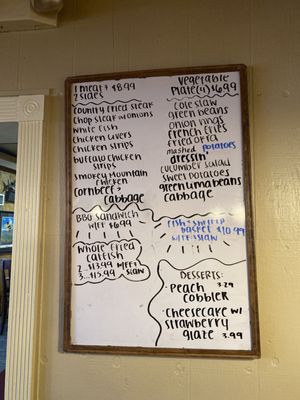 1 meat + $8.99
2 sides
country fried steak
chop steak w/ onions
white fish
chicken livers
chicken strips
buffalo chicken
strips
smokey mountain
chicken
cornbeef +
cabbage
BBQ sandwich
w/FF $6.99
whole fried
catfish
2...$13.99 w/FF +
3...$15.99 slaw
vegetable
plate (4) $6.99
cole slaw
green beans
onion rings
french fries
fried okra
mashed potatoes
dressin'
cucumber salad
sweet potatoes
green lima beans
cabbage
Fish + shrimp
basket $10.99
w/FF + slaw
DESSERTS:
Peach 3.29
cobbler
Cheesecake w/
strawberry
glaze 3.99